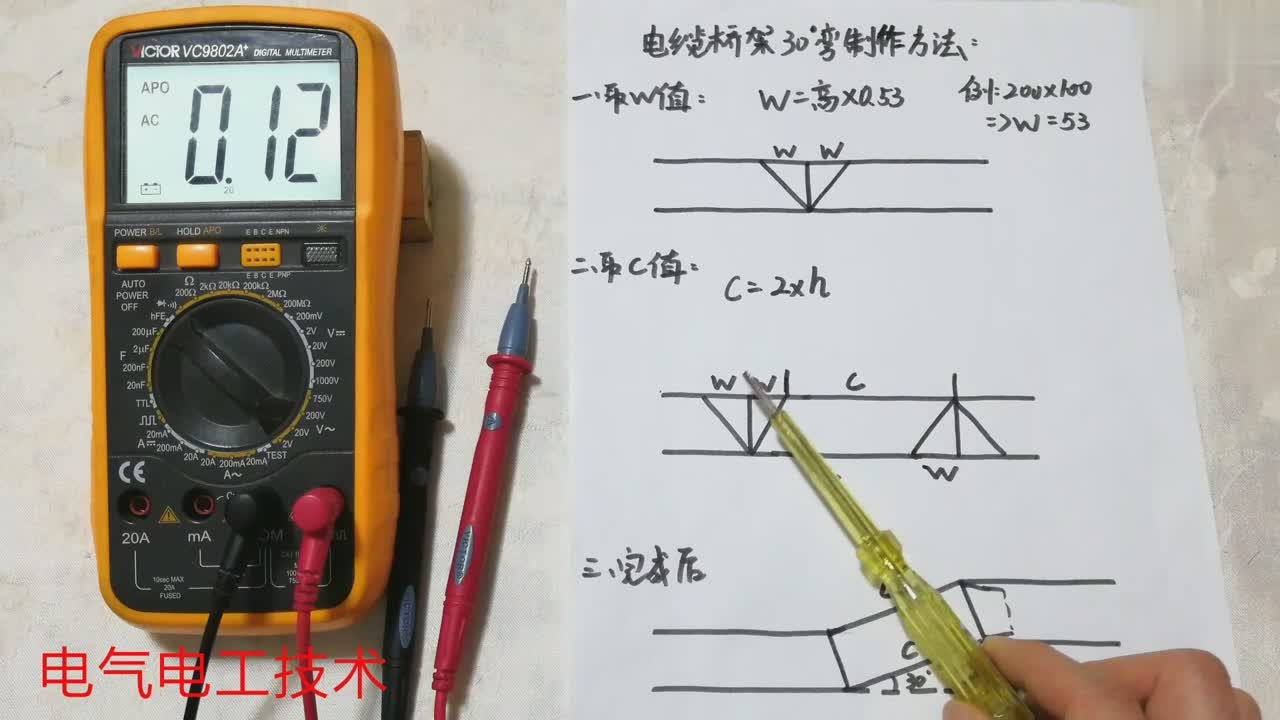 VICTOR VC9802A+ DIGITAL MULTIMETER
APO
AC
0.12
20
POWER B/L
HOLD APO
E B C E NPN
E B C E PNP
AUTO POWER OFF
Ω
200Ω
2kΩ
20kΩ
200kΩ
2MΩ
200MΩ
hFE
200mV
200μF
2V
V
2μF
20V
F
200nF
200V
20nF
1000V
TTL
750V
200V
V~
20mA
20V
A
200mA
2V
20A
20A
200mA
20mA
TEST
A~
CE
20A
mA
10sec MAX
20A
FUSED
电气电工技术
电缆桥架30°弯制作方法:
一、取W值: W=高×0.53 例:200×100
=>W=53
W W
二、取C值: C=2×h
W W C
W
三、完成后
C
30°